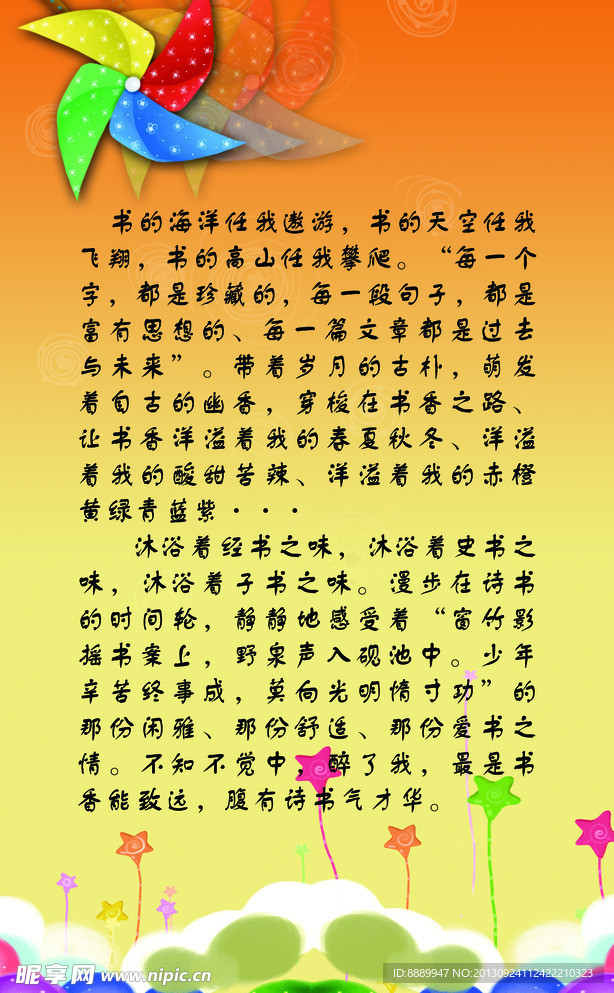 书的海洋任我遨游，书的天空任我
飞翔，书的高山任我攀爬。“每一个
字，都是珍藏的，每一段句子，都是
富有思想的、每一篇文章都是过去
与未来”。带着岁月的古朴，萌发
着自古的幽香，穿梭在书香之路、
让书香洋溢着我的春夏秋冬、洋溢
着我的酸甜苦辣、洋溢着我的赤橙
黄绿青蓝紫···
沐浴着经书之味，沐浴着史书之
味，沐浴着子书之味。漫步在诗书
的时间轮，静静地感受着“窗竹影
摇书案上，野泉声入砚池中。少年
辛苦终事成，莫向光明惰寸功”的
那份闲雅、那份舒适、那份爱书之
情。不知不觉中，醉了我，最是书
香能致远，腹有诗书气才华。
昵享网 www.nipic.cn
ID:8889947 NO:20130924112422210323